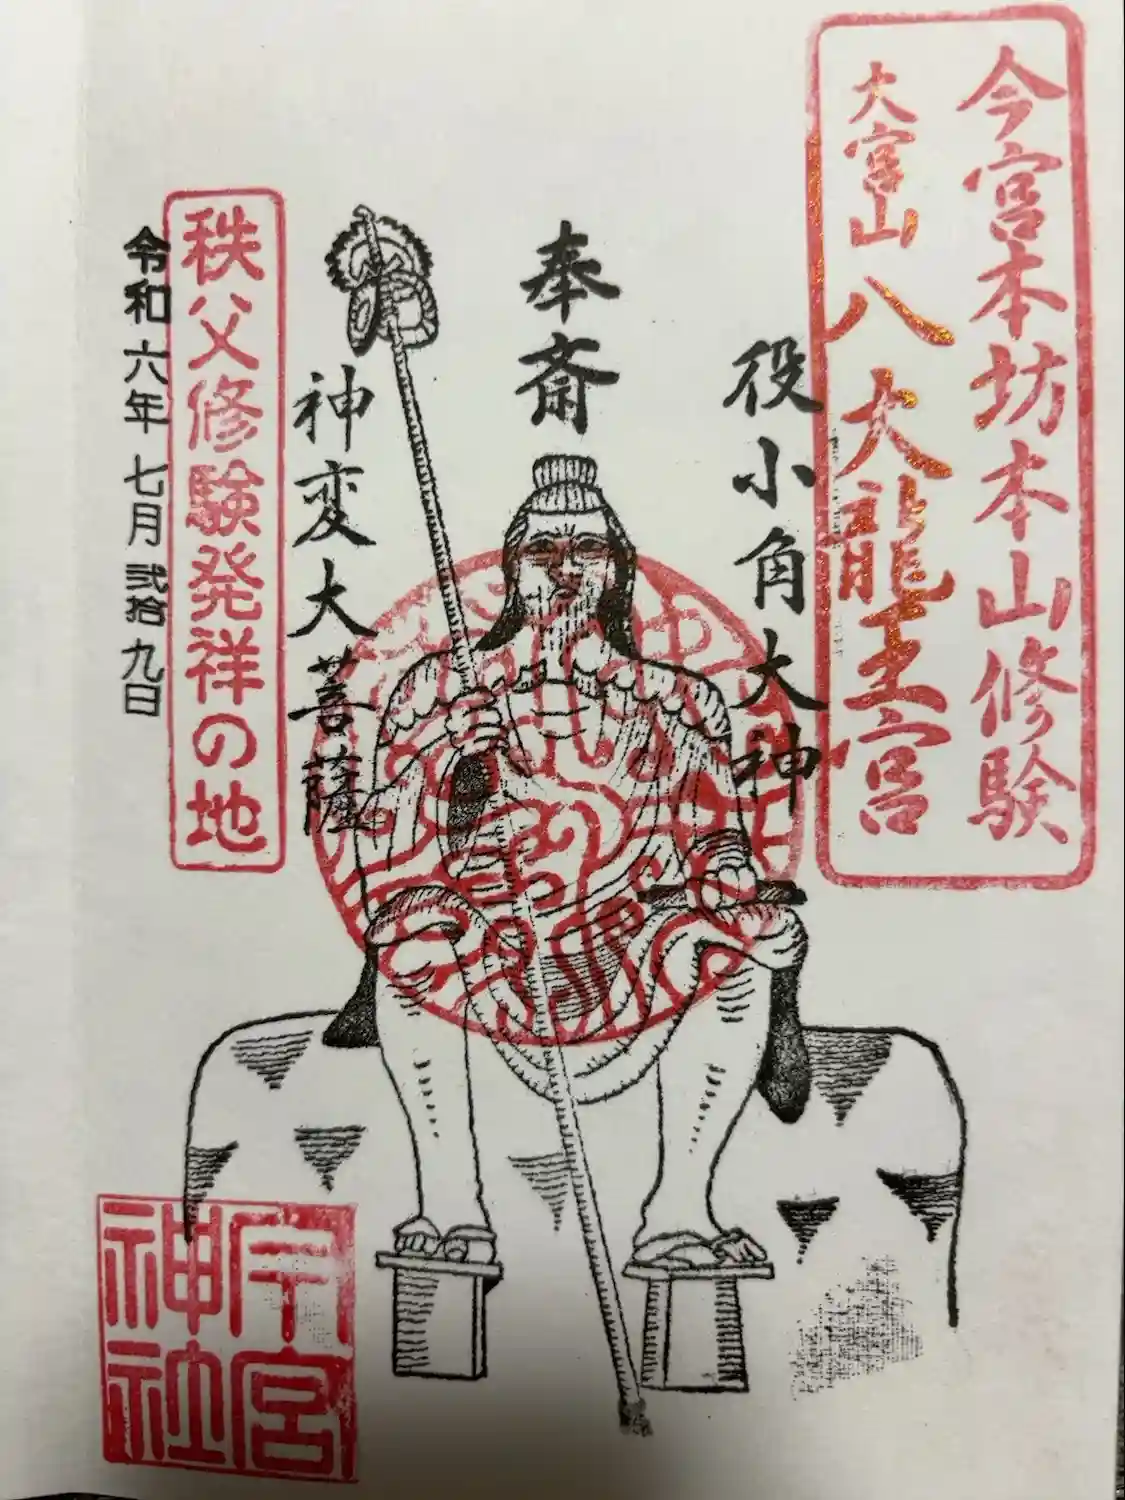 今宮本坊本山修験
大宮山八大龍王宮
役小角大神
奉斎
神変大菩薩
秩父修験発祥の地
令和六年七月弐拾九日
今宮
神社